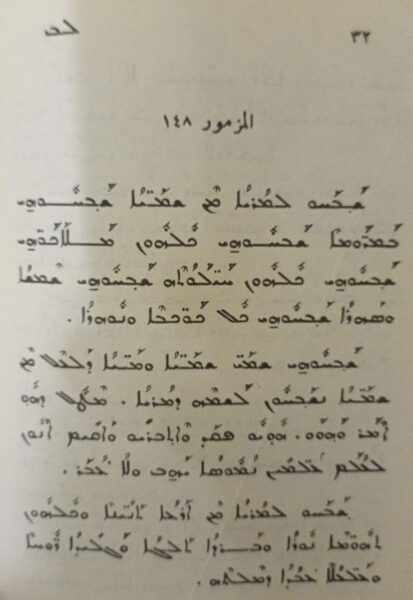 ܠܒ ٣٢
المزمور ١٤٨
ܫܰܒܰܚܘ ܠܡܳܪܝܳܐ ܡܶܢ ܫܡܰܝ̈ܳܐ ܫܰܒܚܽܘܗ̱ܝ
ܒܰܡܪ̈ܰܘܡܶܐ ܫܰܒܚܽܘܗ̱ܝ ܟܽܠܗܽܘܢ ܡܰܠܰܐܟܰܘ̈ܗ̱ܝ
ܫܰܒܚܽܘܗ̱ܝ ܟܽܠܗܽܘܢ ܚܰܝ̈ܠܰܘܳܬܶܗ ܫܰܒܚܽܘܗ̱ܝ ܫܶܡܫܳܐ
ܘܣܰܗܪܳܐ ܫܰܒܚܽܘܗ̱ܝ ܟܽܠ ܟܰܘ̈ܟܒܶܐ ܘܢܽܘܗܪܳܐ.
ܫܰܒܚܽܘܗ̱ܝ ܫܡܰܝ̈ ܫܡܰܝ̈ܳܐ ܘܡܰܝ̈ܳܐ ܕܰܠܥܶܠ ܡܶܢ
ܫܡܰܝ̈ܳܐ ܢܫܰܒܚܽܘܢ ܠܰܫܡܶܗ ܕܡܳܪܝܳܐ. ܡܶܛܽܠ ܕܗܽܘ
ܐܶܡܰܪ ܘܰܗܘܰܘ. ܗܽܘܝܽܘ ܦܩܰܕ ܘܶܐܬܒܪܺܝܘ ܘܰܐܩܺܝܡ ܐܶܢܽܘܢ
ܠܥܳܠܰܡ ܥܳܠܡܺܝܢ ܢܳܡܽܘܣܳܐ ܝܰܗ̱ܒ ܘܠܳܐ ܥܳܒܰܪ.
ܫܰܒܰܚܘ ܠܡܳܪܝܳܐ ܡܶܢ ܐܰܪܥܳܐ ܬܰܢܺܝ̈ܢܶܐ ܘܟܽܠܗܽܘܢ
ܬܗܽܘ̈ܡܶܐ ܢܽܘܪܳܐ ܘܒܰܪܕܳܐ ܬܰܠܓܳܐ ܘܰܓܠܺܝܕܳܐ ܪܽܘ̈ܚܶܐ
ܘܥܰܠܥܳܠ̈ܶܐ ܥܳܒ̈ܕܳܐ ܕܡܶܠܬܶܗ.